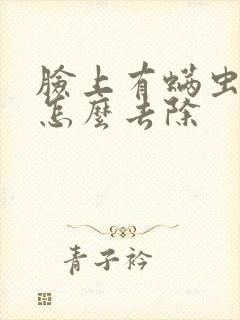 臉上有螨虫
怎麼去除
青子衿